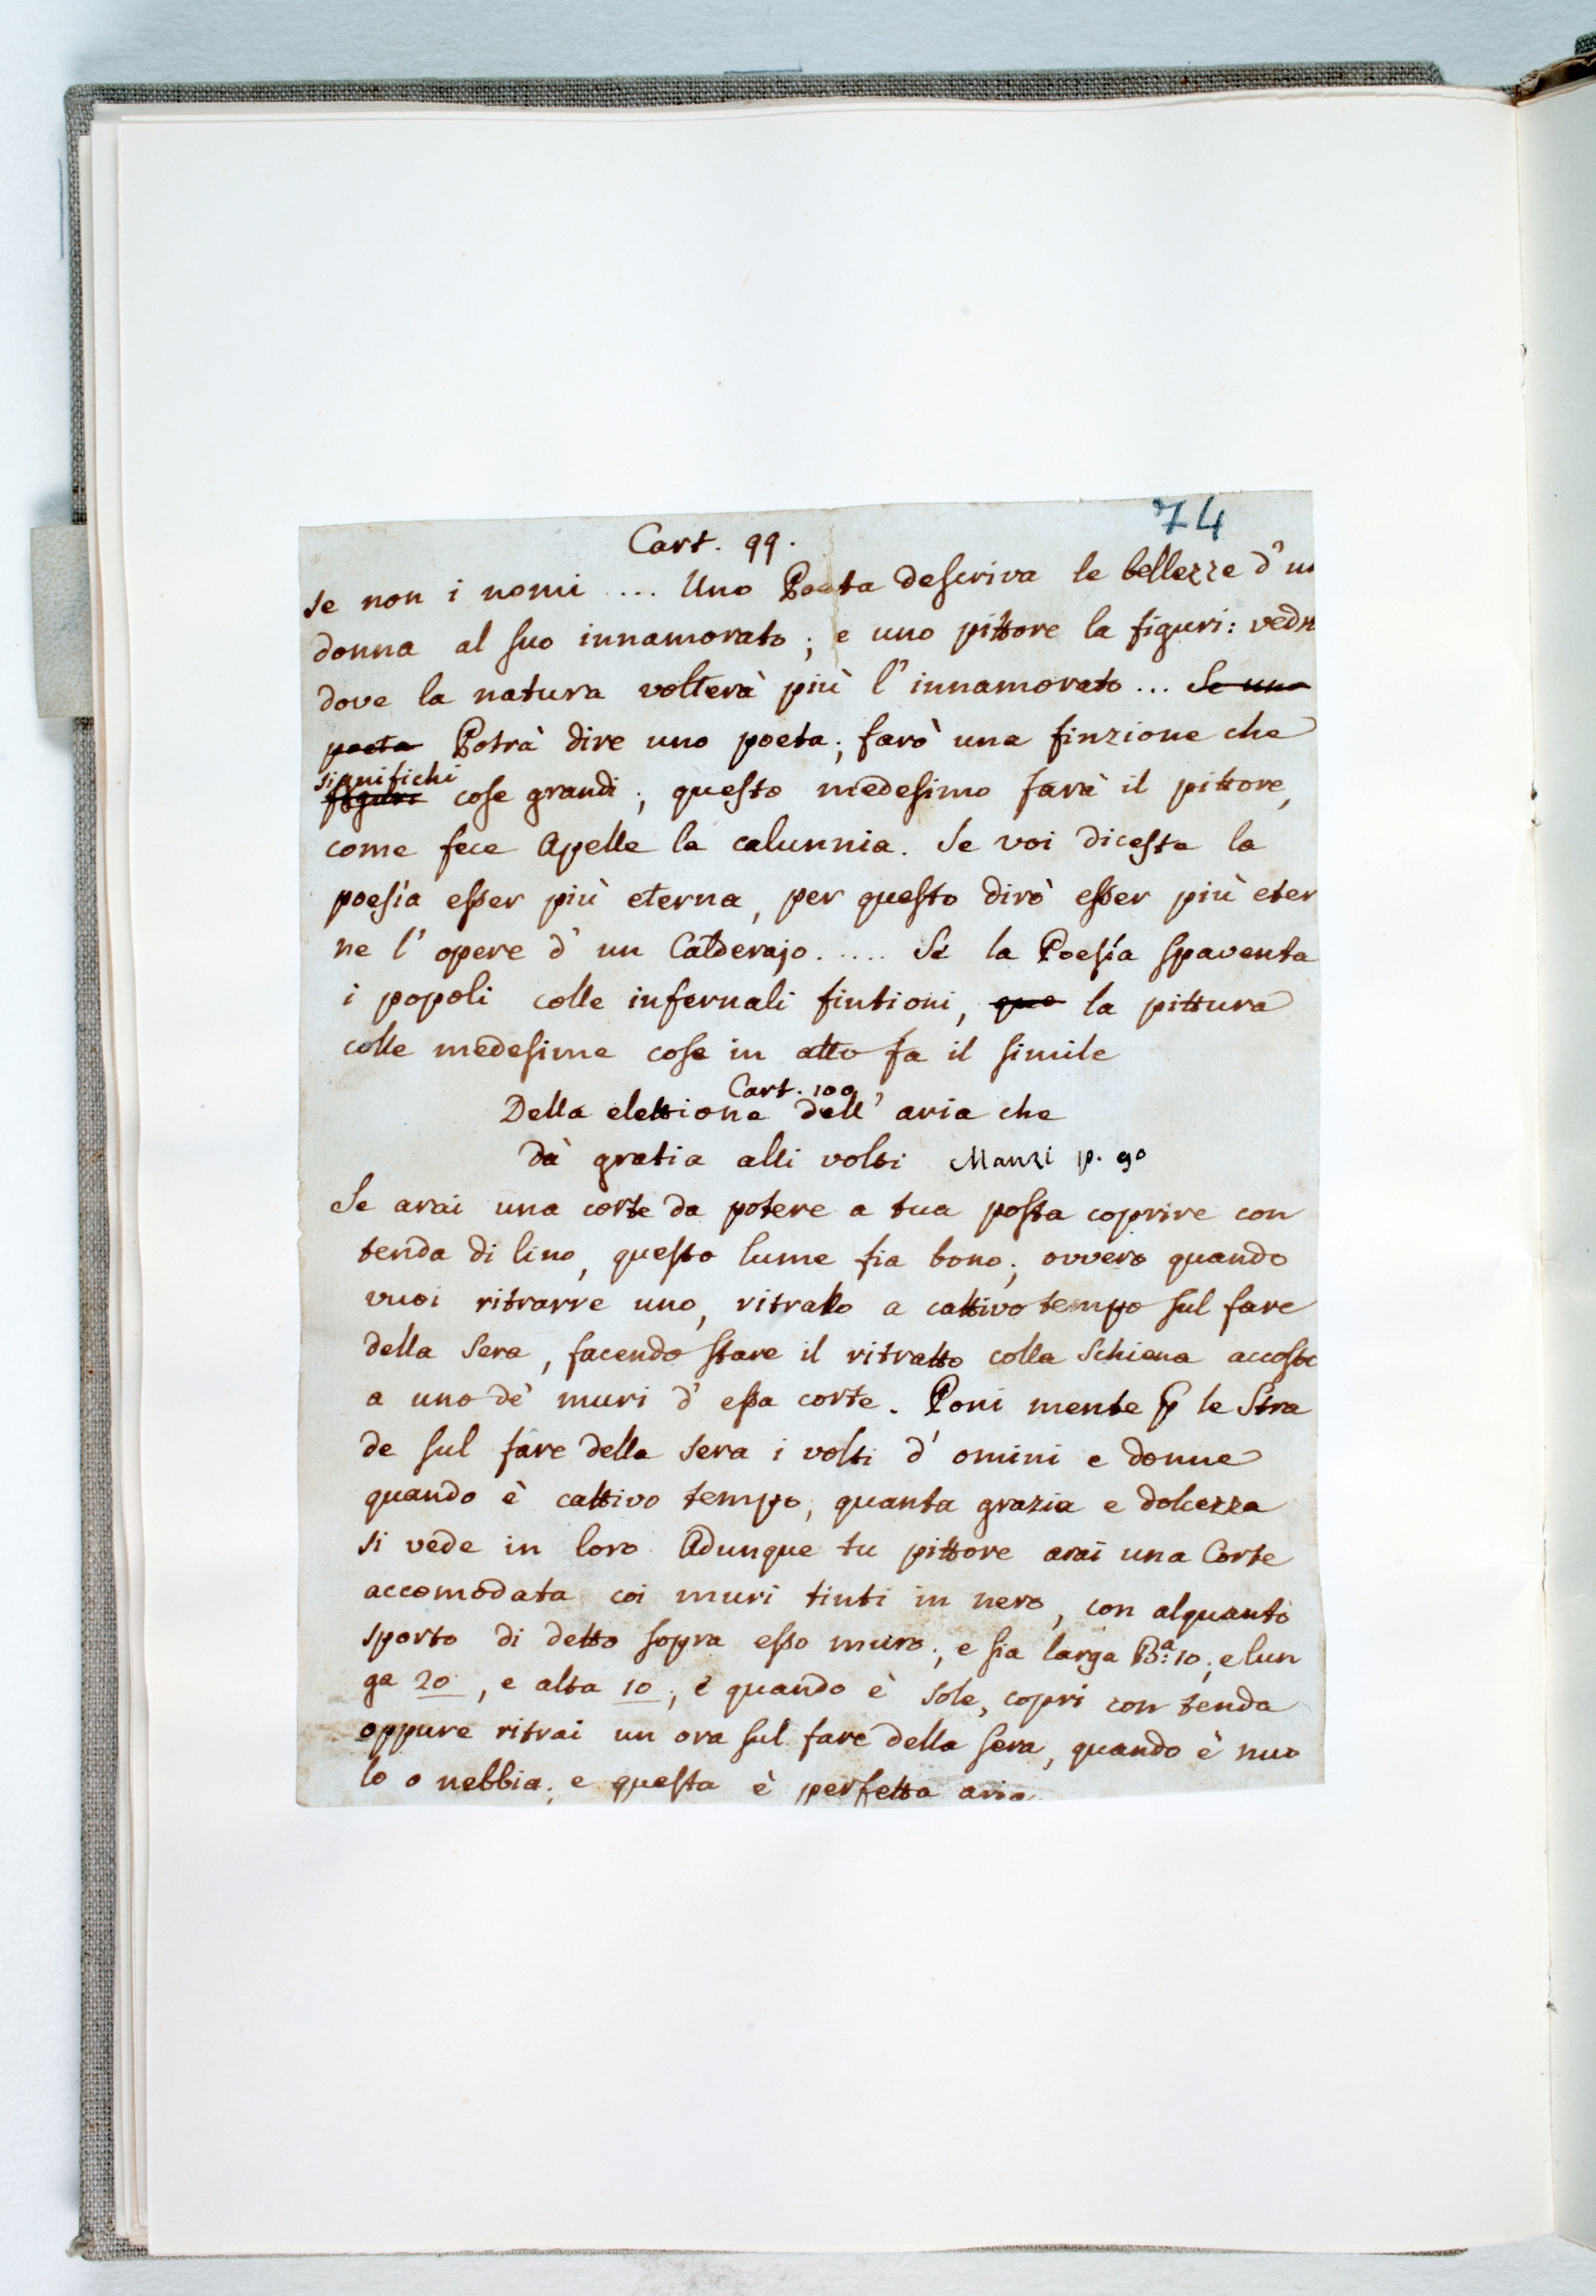 74
Cart. 99.
se non i nomi ... Uno Poeta descriva le bellezze d' un
donna al suo innamorato; e uno pittore la figuri: vedr
dove la natura volterà più l' innamorato ... Se uno
poeta Potrà dire uno poeta; farò una finzione che
significhi
figuri cose grandi; questo medesimo farà il pittore,
come fece Apelle la calunnia. Se voi diceste la
poesía esser più eterna, per questo dirò esser più eter
ne l' opere d' un Calderajo ..... Se la Poesía spaventa
i popoli colle infernali fintioni, que la pittura
colle medesime cose in atto fa il simile
Cart. 100
Della elettione dell' aria che
dà gratia alli volti Manzi p. 90
Se arai una corte da potere a tua posta coprire con
tenda di lino, questo lume fia bono; ovvero quando
vuoi ritrarre uno, ritralo a cattivo tempo sul fare
della sera, facendo stare il ritratto colla schiena accosto
a uno de' muri d' essa corte. Poni mente p le Stra
de sul fare della sera i volti d' omini e donne
quando è cattivo tempo, quanta grazia e dolcezza
si vede in loro Adunque tu pittore arai una Corte
accomodata coi muri tinti in nero, con alquanto
sporto di detto sopra esso muro; e sia larga B.a 10; e lun
ga 20, e alta 10; e quando è sole, copri con tenda
oppure ritrai un ora sul fare della sera, quando è nuo
lo o nebbia; e questa è perfetta aria